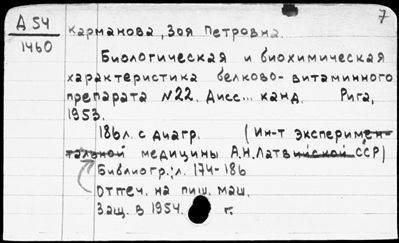 7
Д 54
1460
Карманова, Зоя Петровна.
Биологическая и биохимическая
характеристика белково-витаминного
препарата №22. Дисс... канд. Рига,
1953.
186л. с диагр. (Ин-т эксперимен-
тальной медицины А.Н. Латвийской ССР)
Библиогр.: л. 174-186
Отпеч. на пиш. маш.
Защ. в 1954. г.